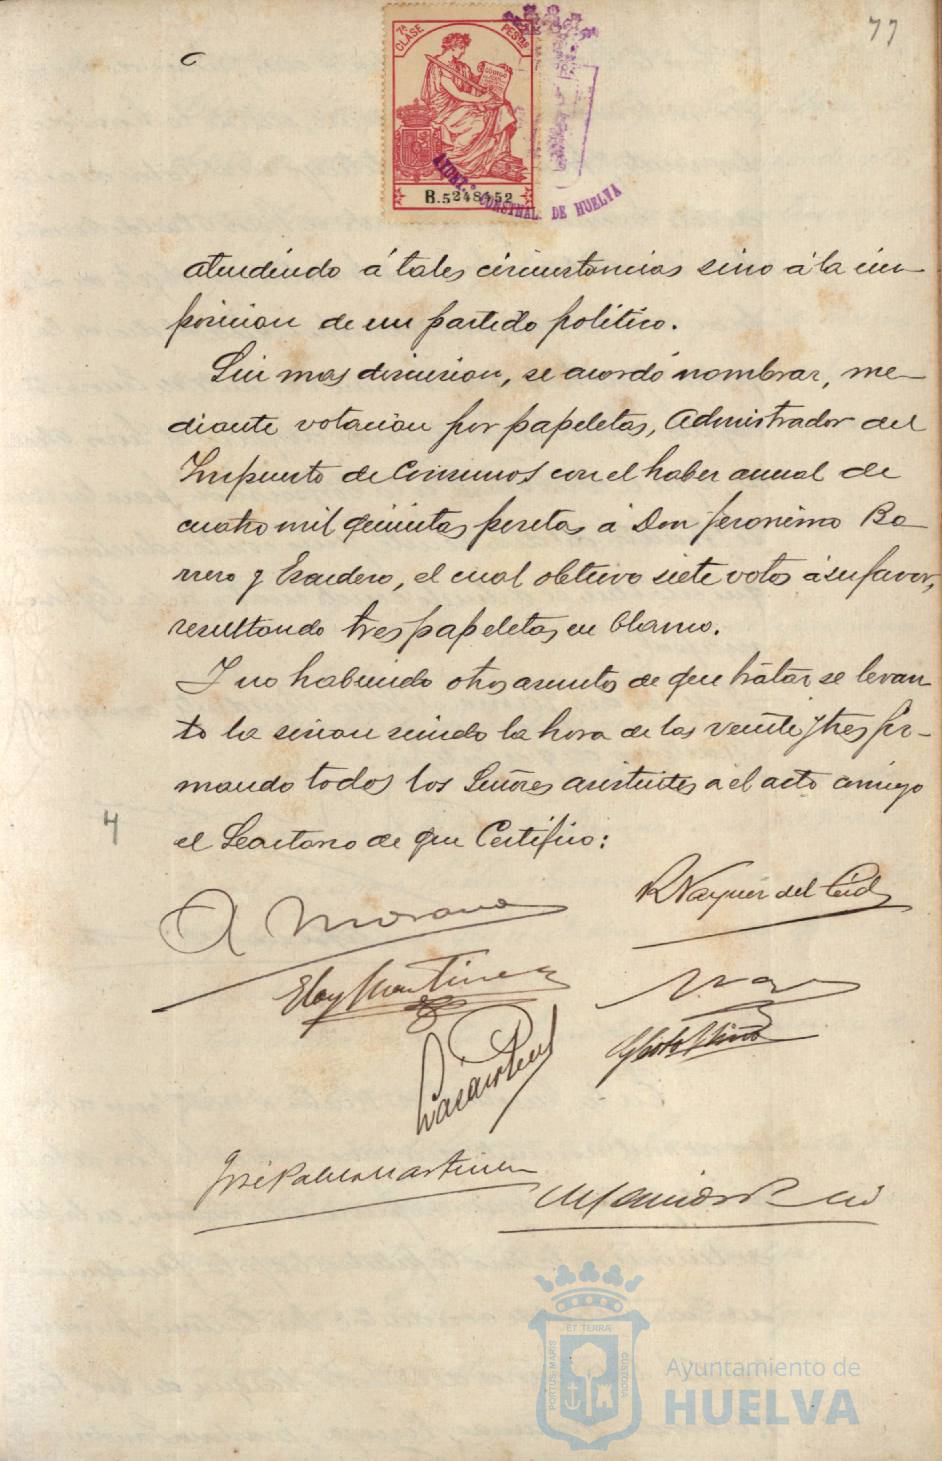 77
7ª CLASE PESTAS
B.5248452
AYUNTº CONSTNAL. DE HUELVA
atendiendo á tales circunstancias sino á la im-
posicion de un partido politico.
Sin mas discusion, se acordó nombrar, me-
diante votacion por papeletas, Administrador del
Impuesto de Consumos con el haber anual de
cuatro mil quinientas pesetas á Don Jeronimo Bo-
rrero y Escudero, el cual obtuvo siete votos á su favor,
resultando tres papeletas en blanco.
Y no habiendo otros asuntos de que trátar se levan
tó la sesion siendo la hora de las veinte y tres fir-
mando todos los Señores asistentes a el acto conmigo
el Secretario de que Certifico:
4
A Morano
R Vazquez del Cid
Eloy Martinez
José Martinez
PORTUS MARIS ET TERRAE CUSTODIA
Ayuntamiento de
HUELVA